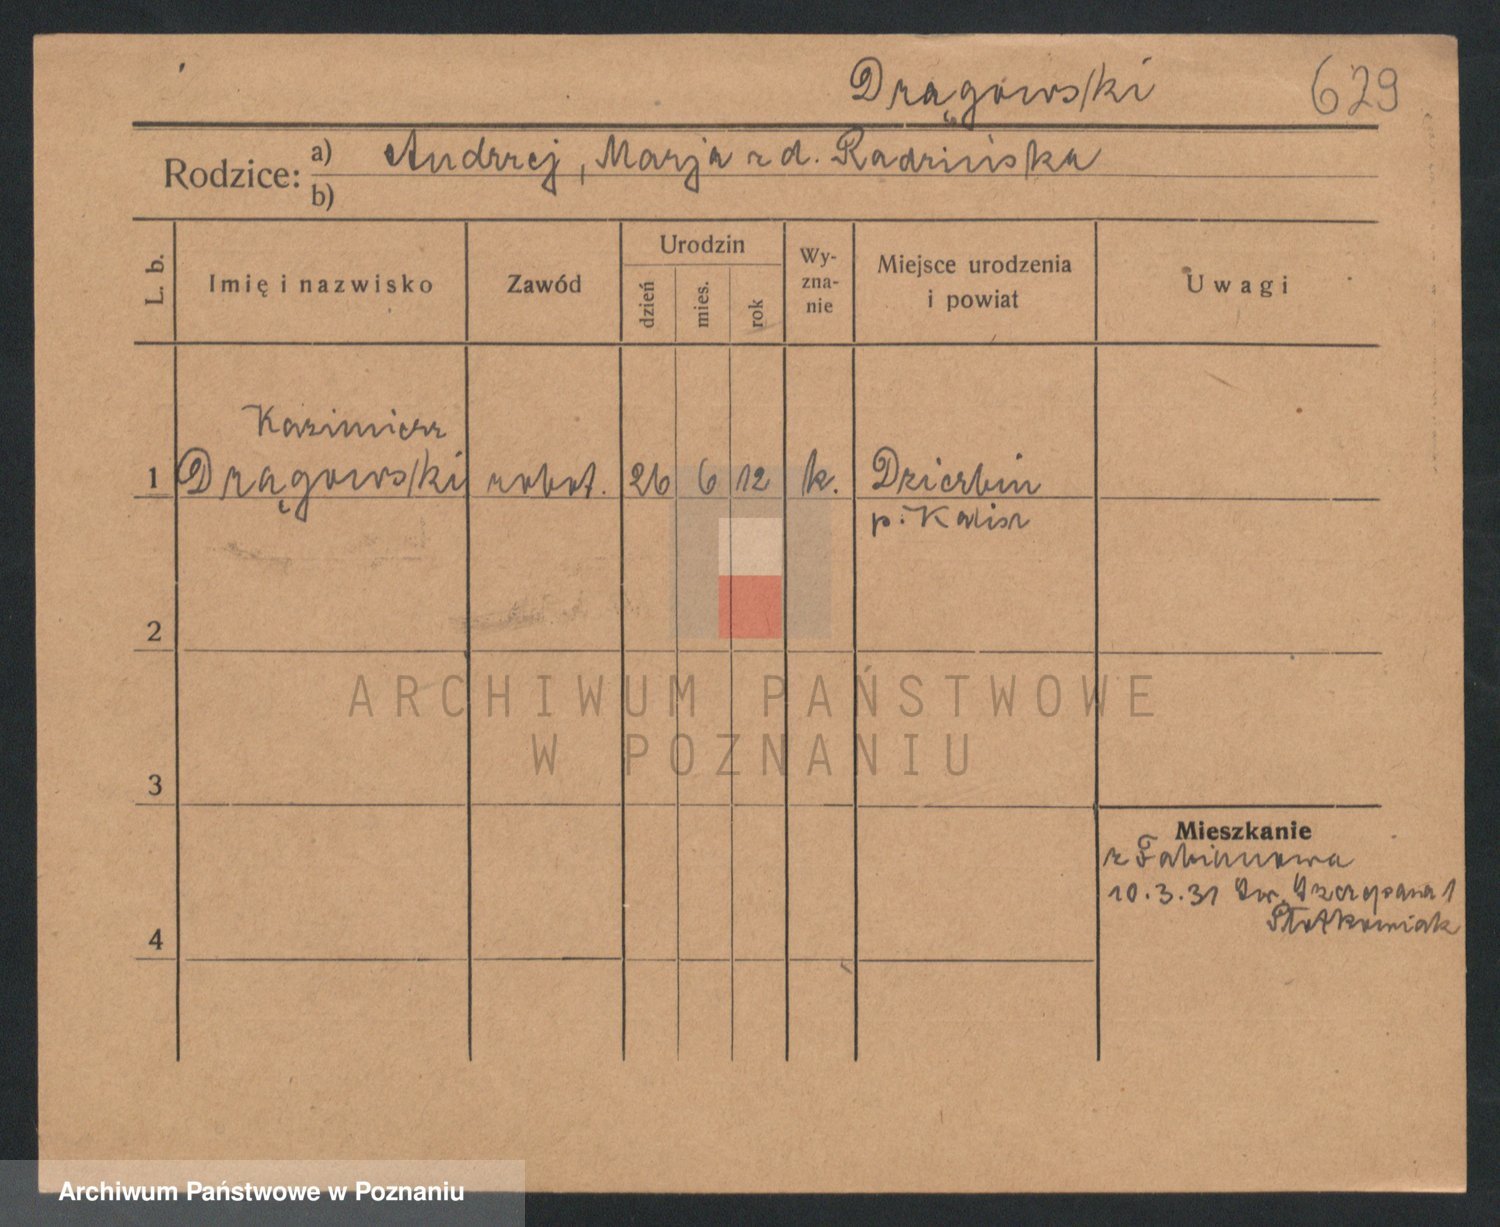 Drągowski 629
Rodzice: a) Andrzej, Marja z d. Radzińska
b)
L. b. Imię i nazwisko Zawód Urodzin dzień mies. rok Wy-zna-nie Miejsce urodzenia i powiat Uwagi
Kazimierz
1 Drągowski robot. 26 6 12 k. Dzierbin
p. Kalisz
2
ARCHIWUM PAŃSTWOWE
W POZNANIU
3
Mieszkanie
z Fabianowa
10.3.31 Św. Szczepana 1
4
Archiwum Państwowe w Poznaniu